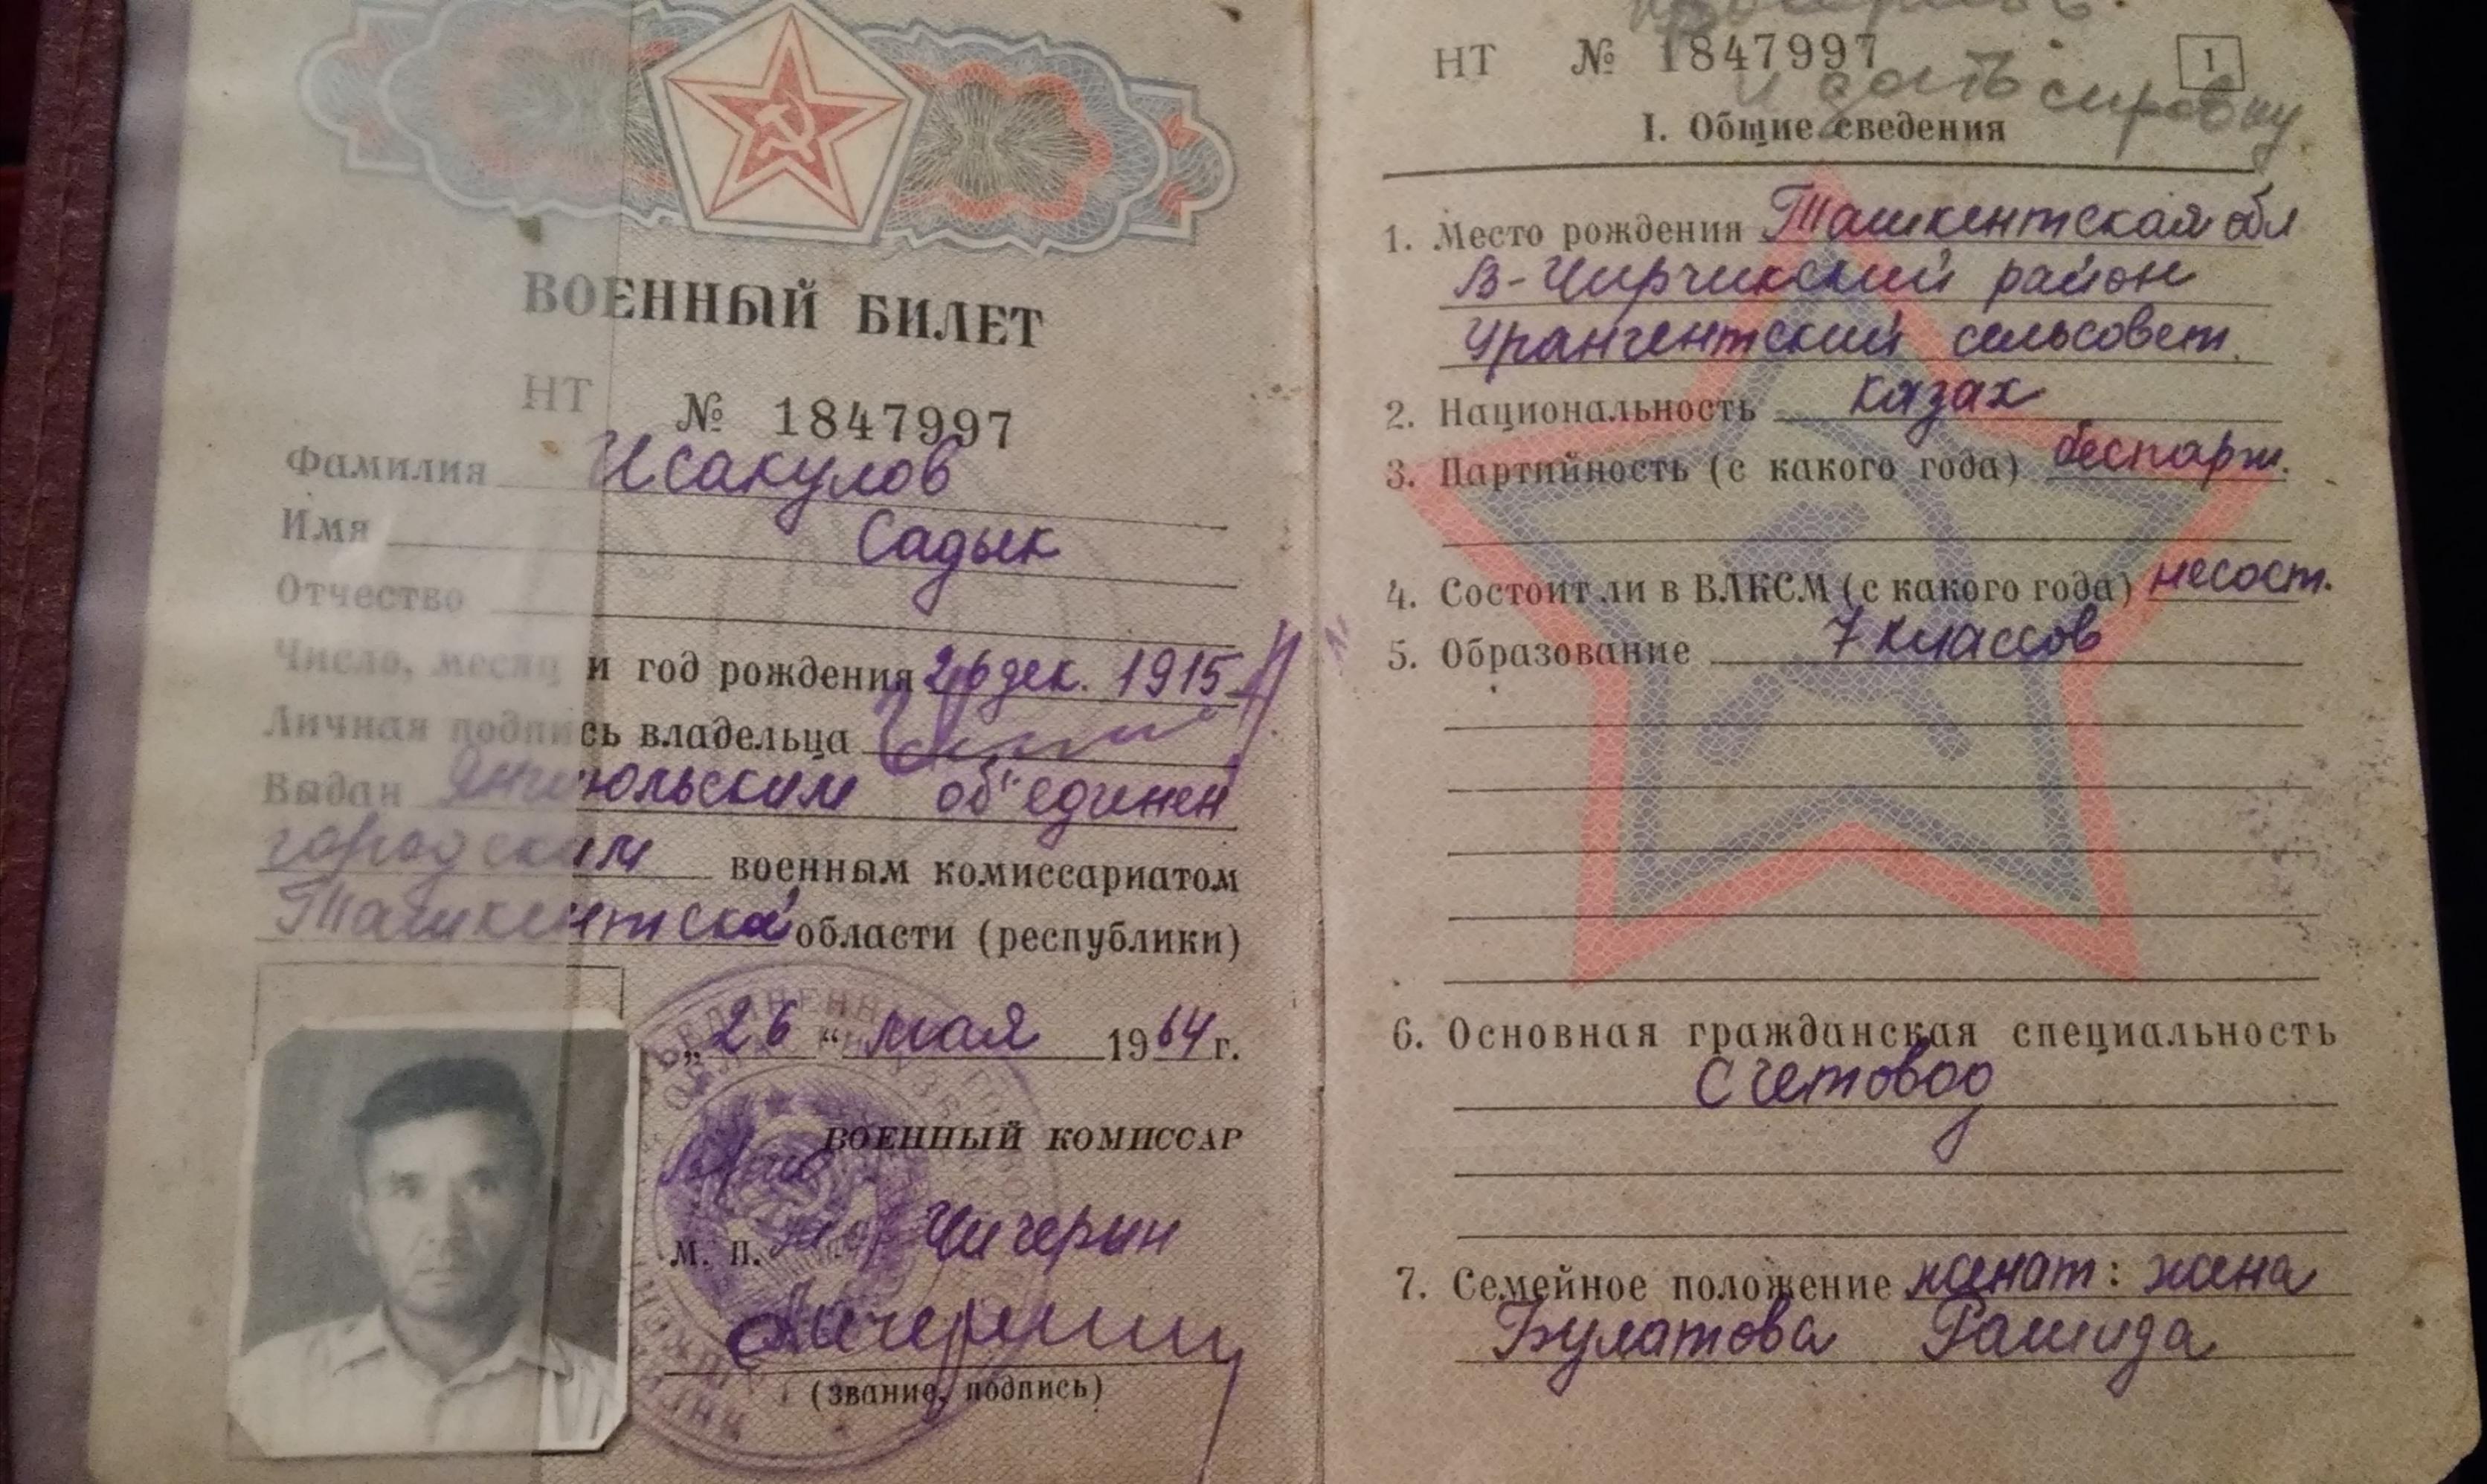 ВОЕННЫЙ БИЛЕТ
НТ № 1847997
Фамилия Исакулов
Имя Садык
Отчество
Число, месяц и год рождения 26 дек. 1915
Личная подпись владельца
Выдан Янгиюльским об"единен
городским военным комиссариатом
Ташкентской области (республики)
„26“ мая 1964 г.
ВОЕННЫЙ КОМИССАР
М. П. Чичерин
(звание, подпись)
НТ № 1847997
1
и дать
I. Общие сведения
1. Место рождения Ташкентская обл
В-Чирчикский район
Урангентский сельсовет.
2. Национальность казах
3. Партийность (с какого года) беспарт.
4. Состоит ли в ВЛКСМ (с какого года) несост.
5. Образование 7 классов
6. Основная гражданская специальность
Счетовод
7. Семейное положение женат: жена
Булатова Рашида